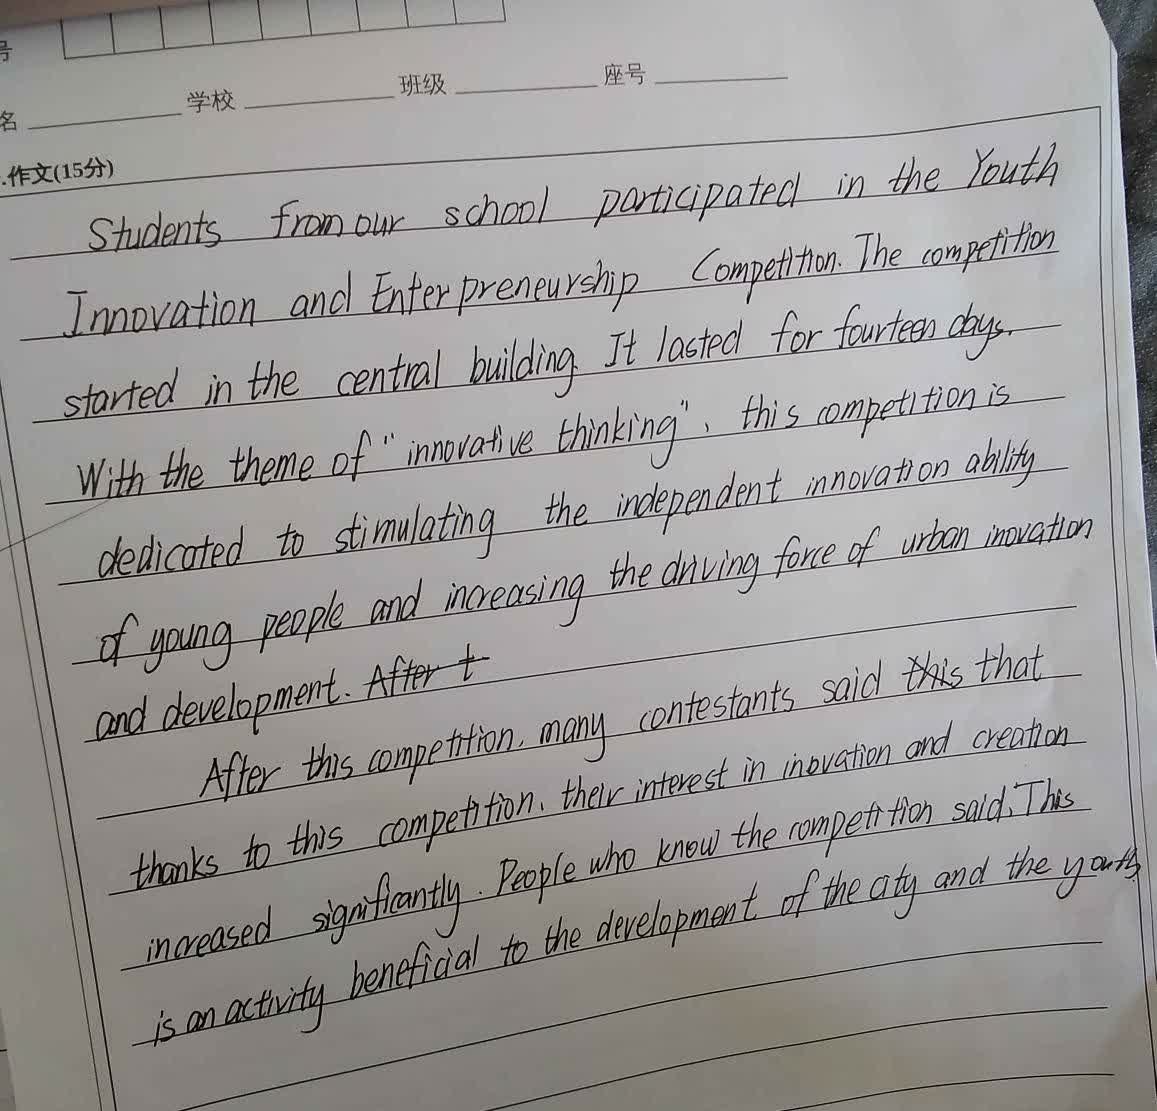 号
名 学校 班级 座号
.作文(15分)
Students from our school participated in the Youth
Innovation and Enterpreneurship Competition. The competition
started in the central building. It lasted for fourteen days.
With the theme of "innovative thinking", this competition is
dedicated to stimulating the independent innovation ability
of young people and increasing the driving force of urban inovation
and development. After t
After this competition, many contestants said this that
thanks to this competition, their interest in inovation and creation
increased significantly. People who know the competition said, This
is an activity beneficial to the development of the city and the youth.